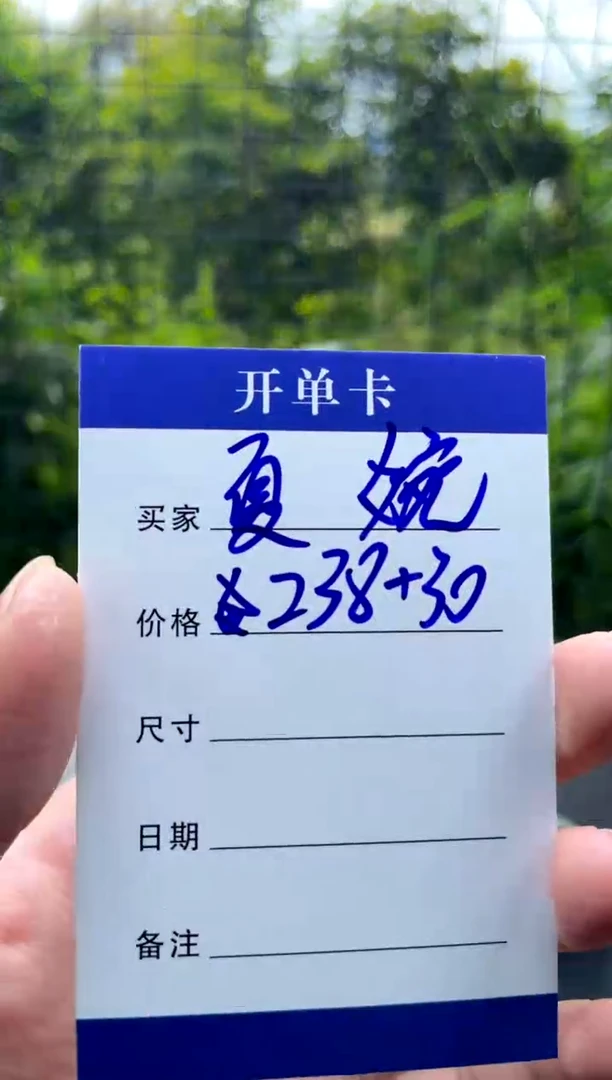 开单卡
买家 夏婉
价格 238+30
尺寸
日期
备注